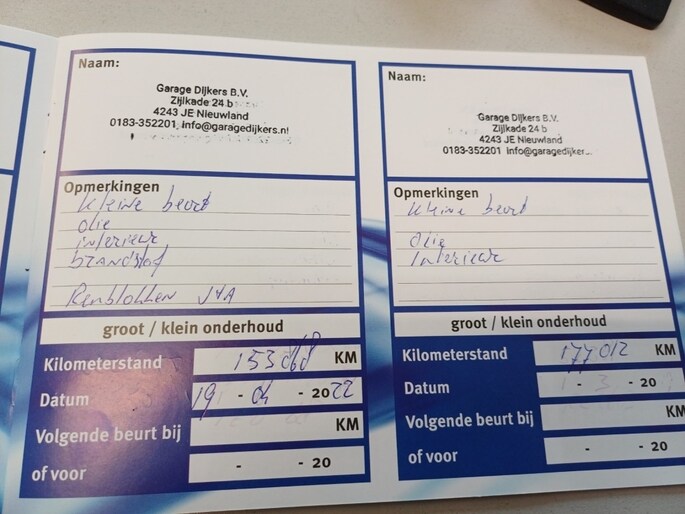 Naam:
Garage Dijkers B.V.
Zijlkade 24 b
4243 JE Nieuwland
0183-352201 info@garagedijkers.nl
Opmerkingen
Kleine beurt
olie
interieur
brandstof
Remblokken V+A
groot / klein onderhoud
Kilometerstand 153 868 KM
Datum 19 - 04 - 2022
Volgende beurt bij KM
of voor - - 20
Naam:
Garage Dijkers B.V.
Zijlkade 24 b
4243 JE Nieuwland
0183-352201 info@garagedijker
Opmerkingen
Kleine beurt
Olie
Interieur
groot / klein onderhoud
Kilometerstand 177 012 KM
Datum - 3 - 20
Volgende beurt bij KM
of voor - - 20